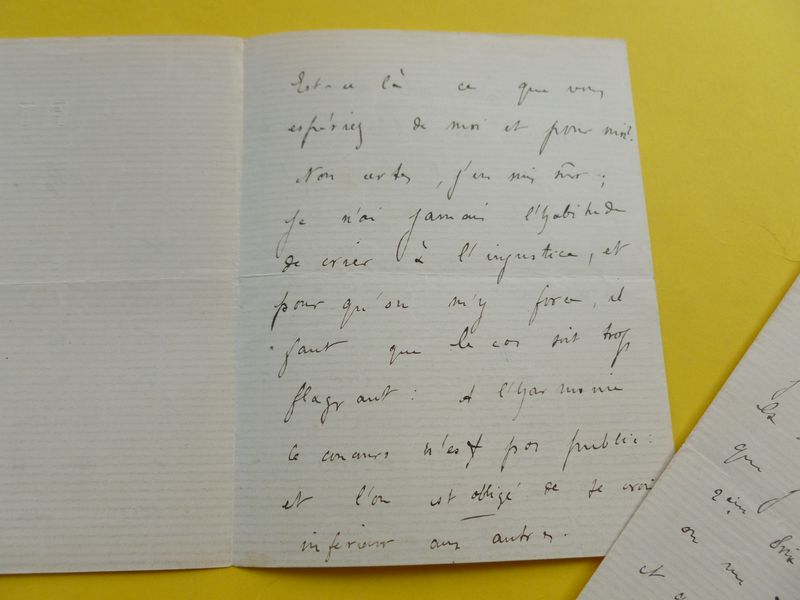 Est-ce là ce que vous
espériez de moi et pour moi?
Non certes, j'en suis sûr;
je n'ai jamais l'habitude
de crier à l'injustice, et
pour qu'on m'y force, il
faut que le cas soit trop
flagrant: A l'harmonie
le concours n'est pas public:
et l'on est obligé de se croire
inférieur aux autres.
que
on me
et